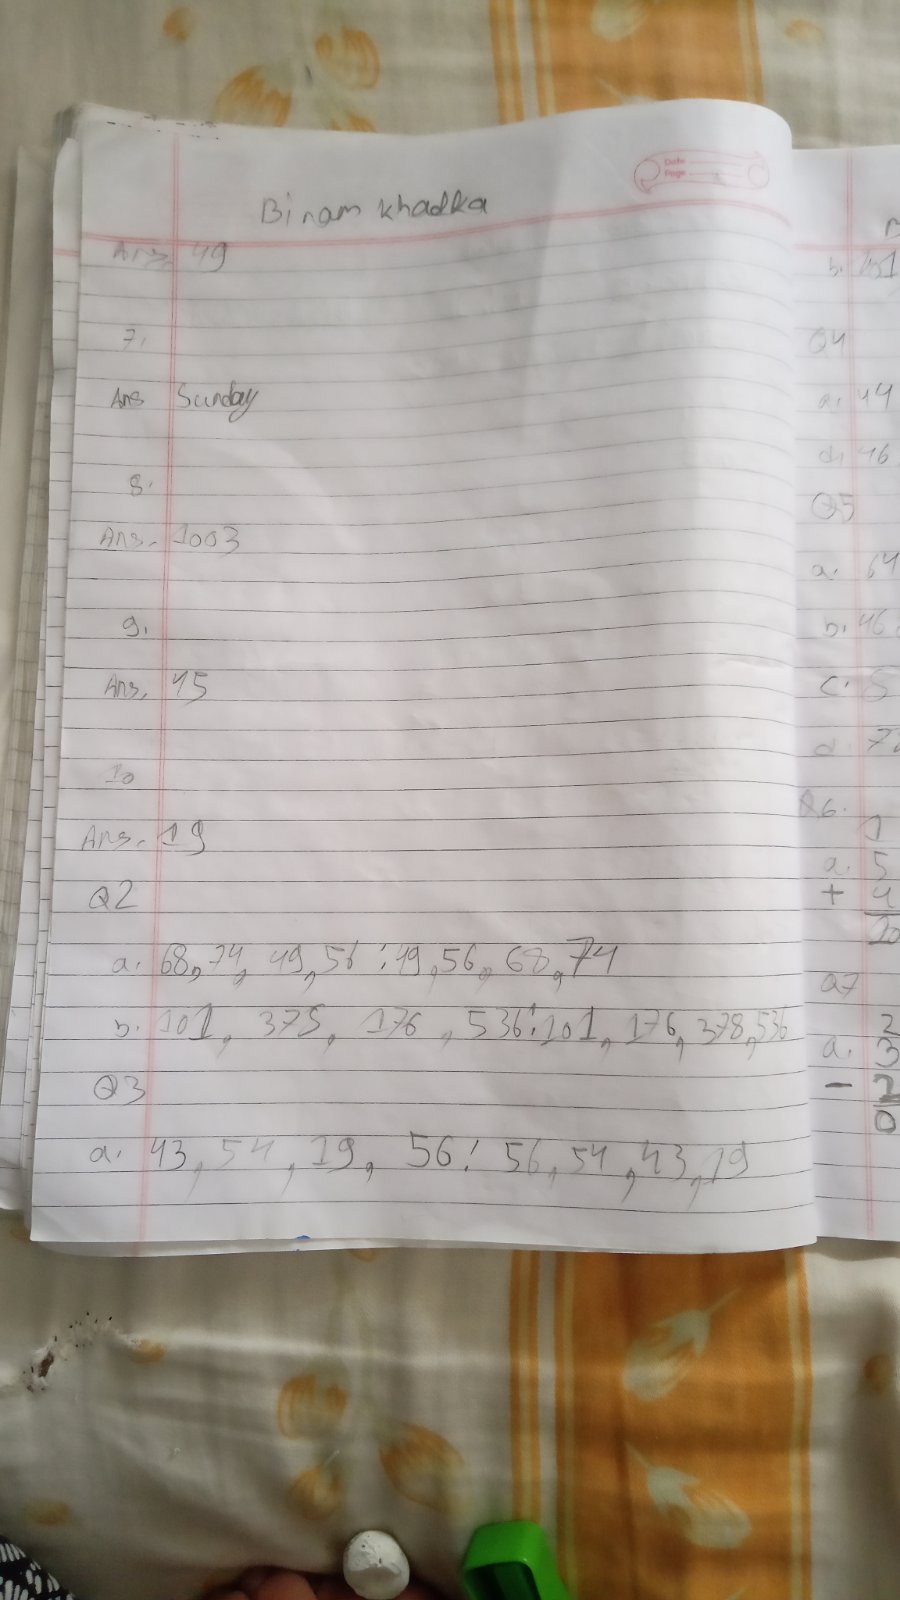 Date
Page
Binam khadka
Ans. 49
7.
Ans Sunday
8.
Ans. 1003
9.
Ans. 15
10
Ans. 19
Q2
a. 68, 74, 49, 56 : 49, 56, 68, 74
b. 101, 378, 176, 536 : 101, 176, 378, 536
Q3
a. 43, 54, 19, 56 : 56, 54, 43, 19
b. 101
Q4
a. 44
d. 46
Q5
a. 64
b. 46
c. 5
d. 7
Q6.
1
a. 5
+ 4
10
Q7
2
a. 3
- 2
0